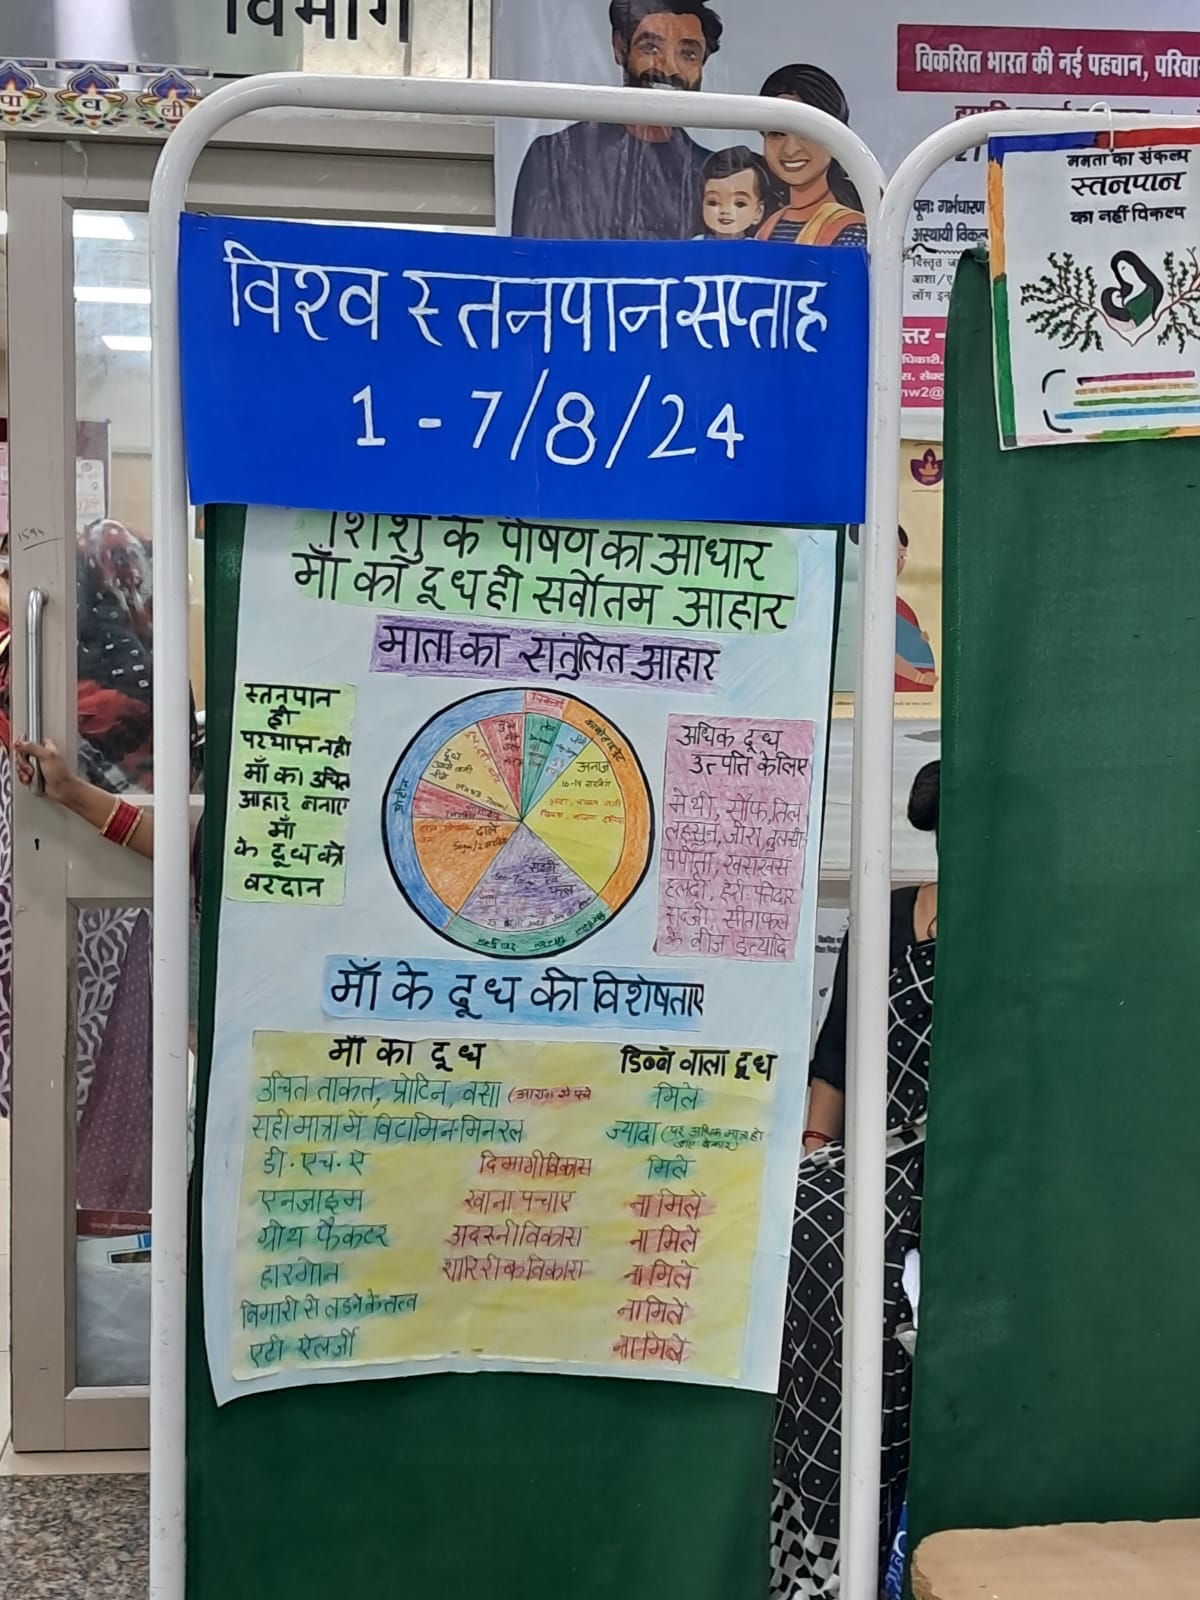 विभाग
पा व ली
विकसित भारत की नई पहचान, परिवा
ममता का संकल्प
स्तनपान
का नहीं विकल्प
पून: गर्भधारण
अस्थायी विकल
विस्तृत जा
आशा/ए
लॉग इन
त्तर -
धिकारी,
स, सेक्ट
nw2@
विश्व स्तनपान सप्ताह
1 - 7/8/24
शिशु के पोषण का आधार
माँ का दूध ही सर्वोतम आहार
माता का संतुलित आहार
स्तनपान
ही
पर्याप्त नही
माँ का उचित
आहार बनाए
माँ
के दूध को
वरदान
प्रोटीन
चिकनाई
कार्बोहाइड्रेट
अनाज
10-14 सर्विंग
दूध
दालें
सब्जी
एवं
फल
अधिक दूध
उत्पति के लिए
मेथी, सौंफ, तिल
लहसुन, जीरा, तुलसी
पपीता, खसखस
हल्दी, हरी पतेदार
सब्जी, सीताफल
के बीज इत्यादि
माँ के दूध की विशेषताए
माँ का दूध डिब्बे वाला दूध
उचित ताकत, प्रोटिन, वसा (आराम से पचे मिले
सही मात्रा में विटामिन-मिनरल ज्यादा (पर अधिक मात्रा हो
डी. एच. ए दिमागी विकास मिले
एनजाइम खाना पचाए ना मिले
ग्रोथ फैक्टर अंदरुनी विकास ना मिले
हारमोन शारिरीक विकास ना मिले
बिमारी से लडने के तत्व ना मिले
एंटी ऐलर्जी ना मिले